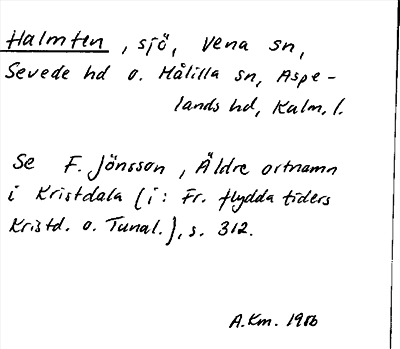 Halmten, sjö, Vena sn,
Sevede hd o. Målilla sn, Aspe-
lands hd, Kalm. l.
Se F. Jönsson, Äldre ortnamn
i Kristdala (i: Fr. flydda tiders
Kristd. o. Tunal.), s. 312.
A.Km. 1986